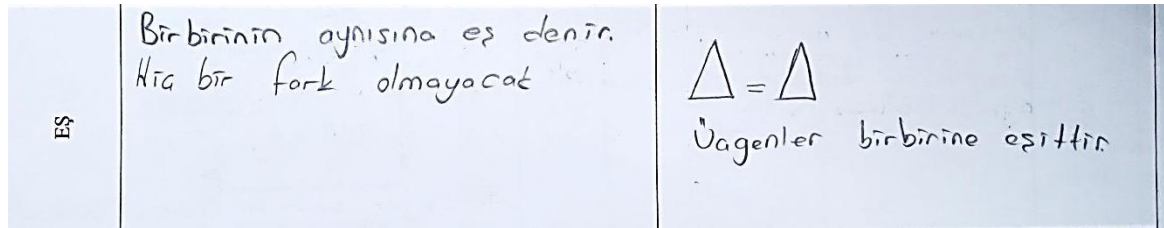 EŞ
Birbirinin aynısına eş denir.
Hiç bir fark olmayacak
Δ = Δ
Üçgenler birbirine eşittir.